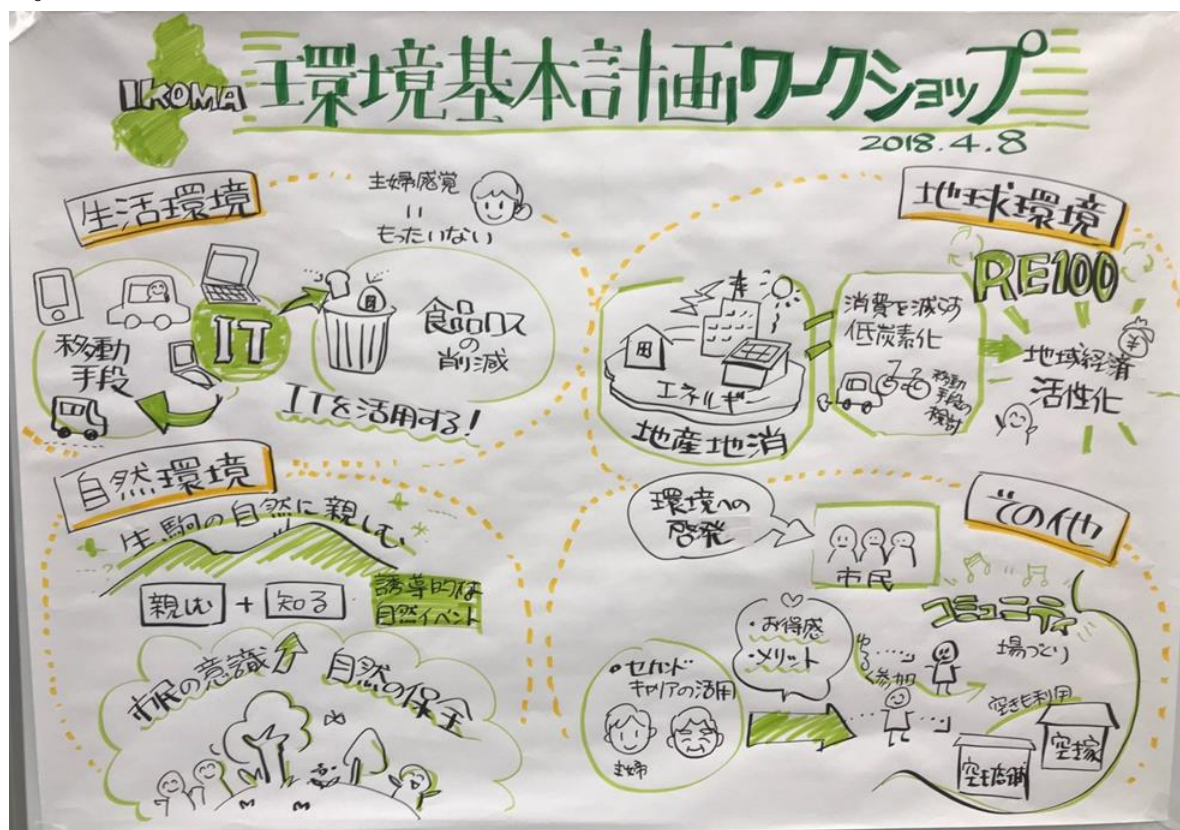 IKOMA
環境基本計画ワークショップ
2018.4.8
生活環境
主婦感覚
=
もったいない
移動
手段
IT
食品ロス
の
削減
ITを活用する!
地球環境
RE100
エネルギー
地産地消
消費を減らす
低炭素化
移動
手段の
検討
¥
地域経済
活性化
自然環境
生駒の自然に親しむ
親しむ + 知る
誘導的な
自然イベント
市民の意識
自然の保全
その他
環境への
啓発
市民
コミュニティ
場づくり
・お得感
・メリット
ゆるく参加
・セカンド
キャリアの活用
主婦
空きも利用
空き店舗
空き家